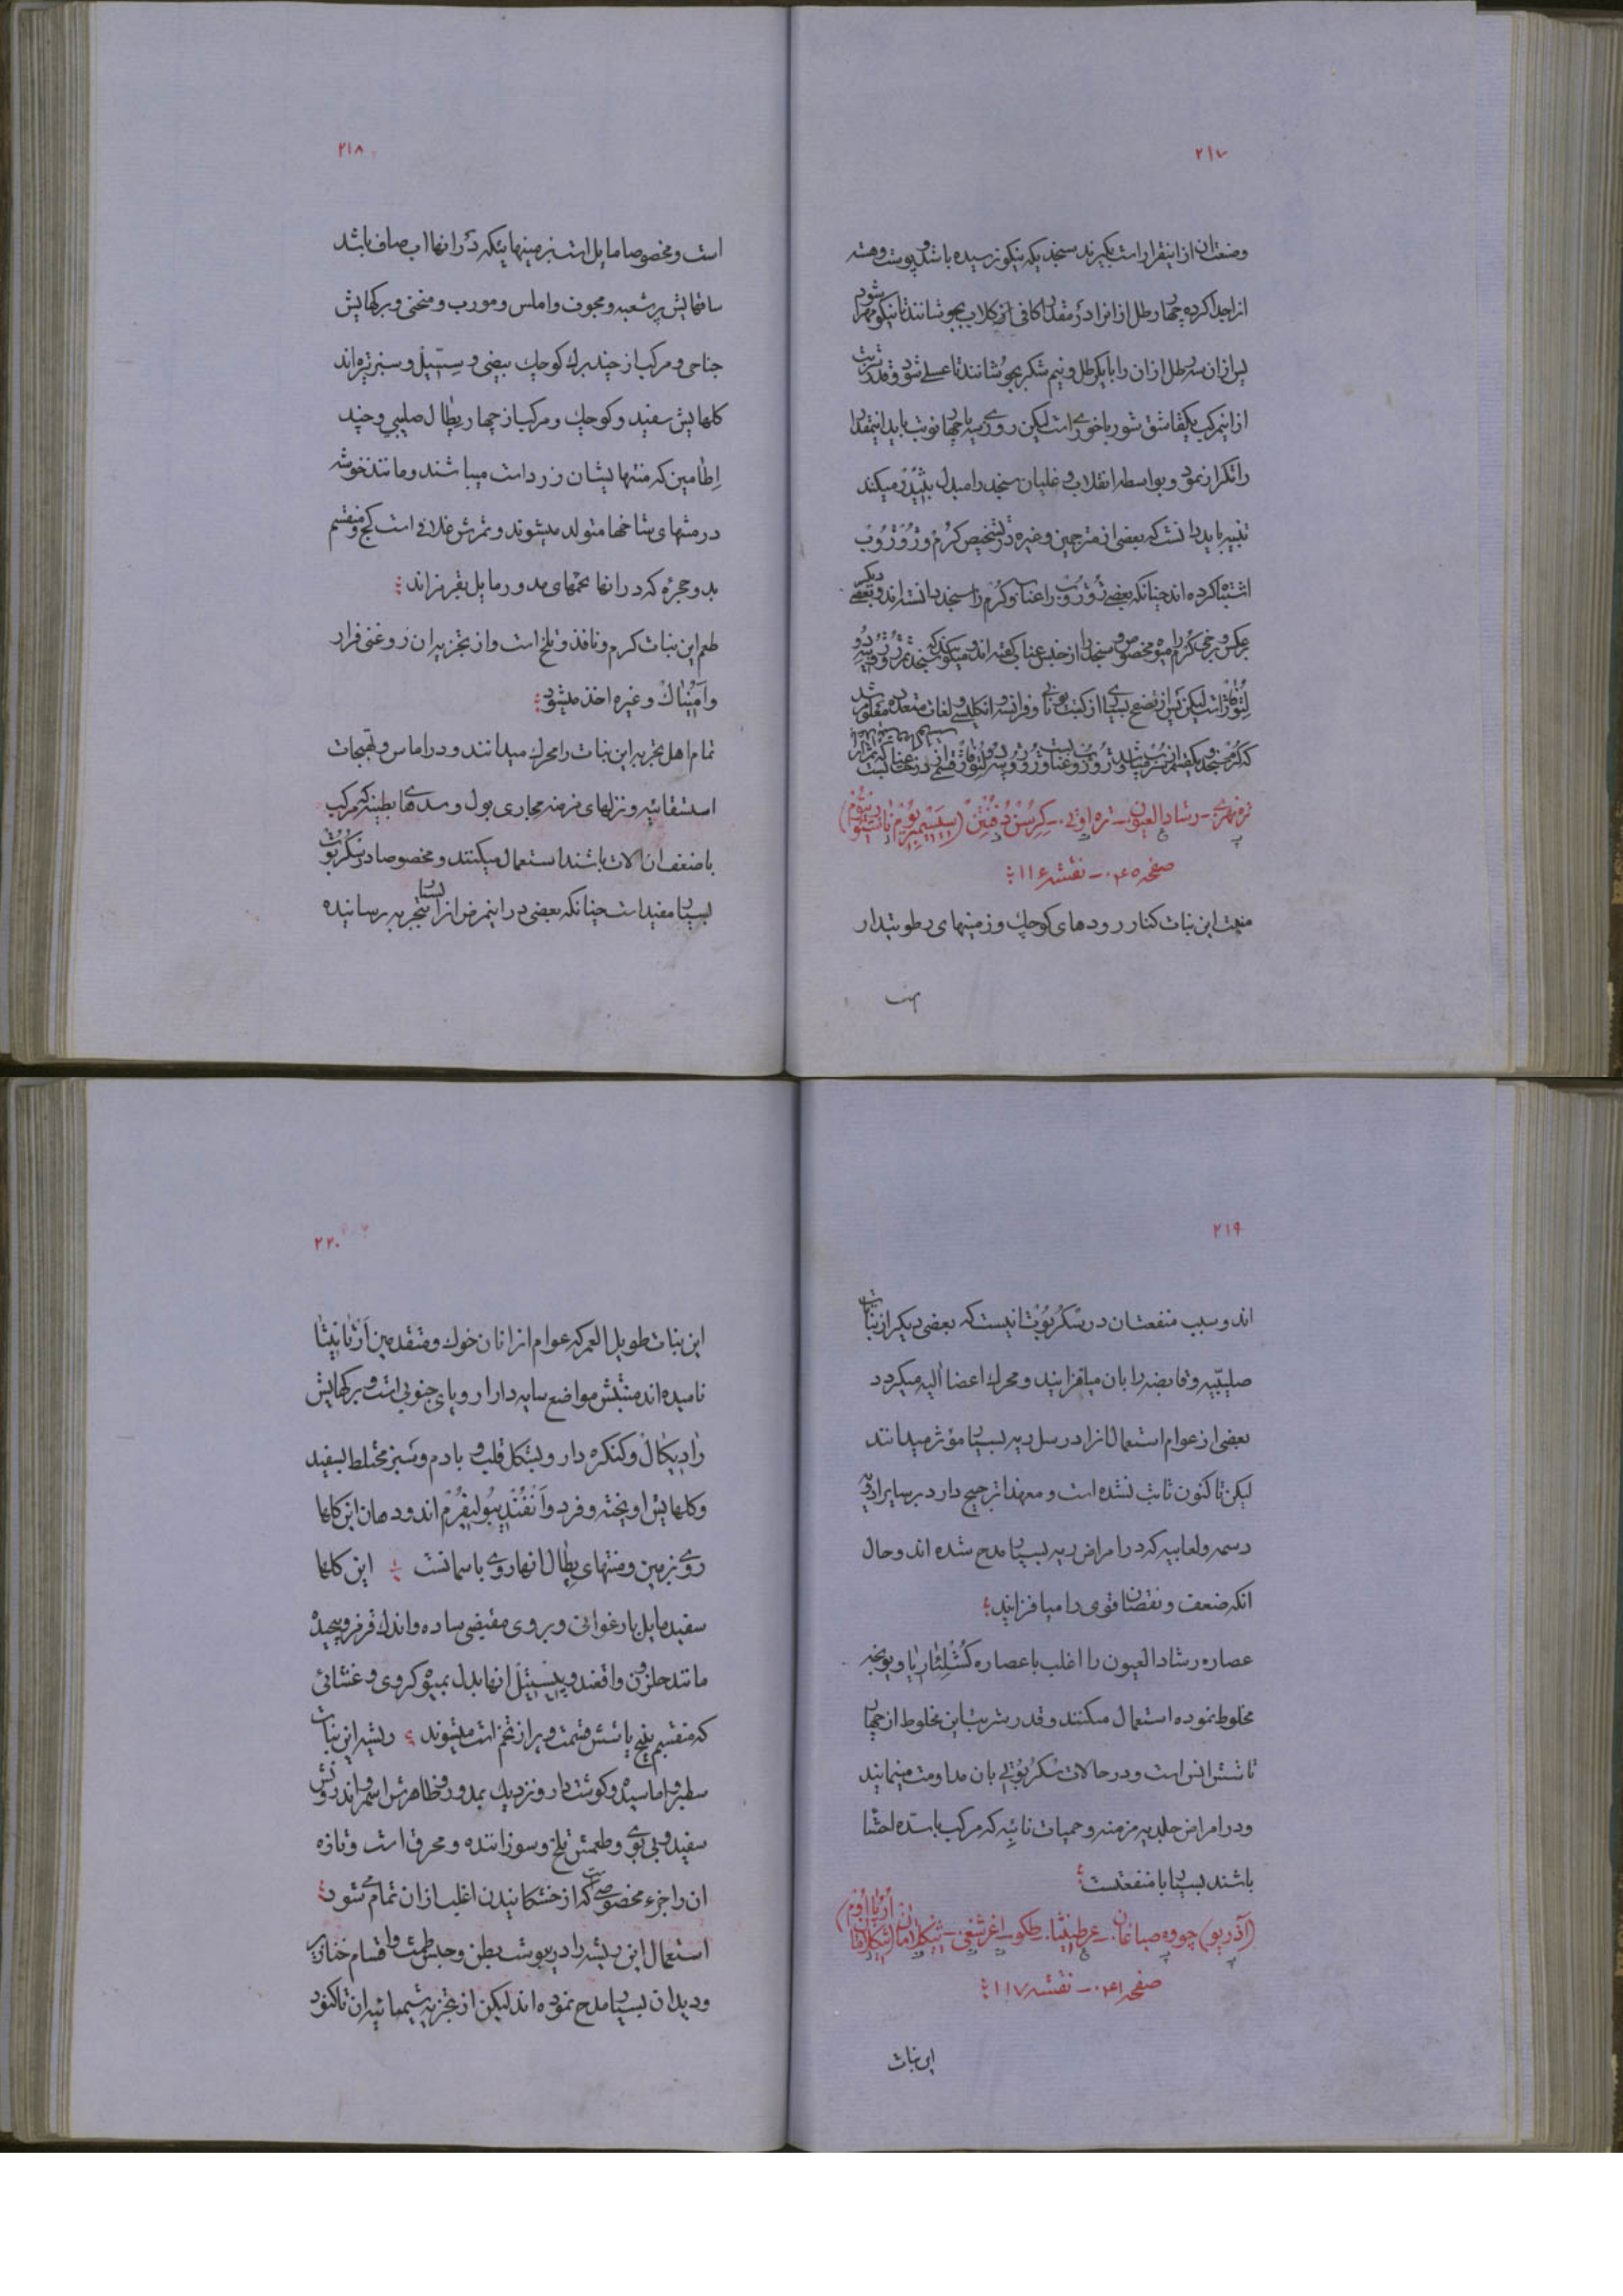 ۲۱۷
وصنعتان از اینقرار است بگیرند سنجدیکه نیکو رسیده باشد و پوست وهسته
انرا جدا کرده چهار رطل از انرا در مقدار کافی از گلاب بجوشانند تا نیکو مهرا شود
پس ازان سه رطل ازان را با یکرطل ونیم شکر بجوشانند تا عسلی شود وقدر شربت
از اینمرکب یکقاشق شورباخوری است لیکن روزی سه یا چهار نوبت باید اینمقدار
را تکرار نمود وبواسطه انقلاب و غلیان سنجد را مبدل بنبیذ میکند
تنبیه باید دانست که بعضی از مترجمین وغیره در تشخیص کرم و ژوژوب
اشتباه کرده اند چنانکه بعضی ژوژوب را عناب وکرم را سنجد دانسته اند وبعضی دیگر
برعکس و برخی کرم را میوه مخصوص و سنجد را از جنس عناب گفته اند و میگویند که سنجد
است لیکن پس از تفحص بسیار از کتب یونانی وفرانسه وانگلیسی و لغات متعدده معلوم شد
تره نهری ـ رشاد العیون ـ تره ابی ـ کرسن دفنتن (سیسیمبریوم ناستورتیوم)
صفحه ۰۴۵ ـ نقشه ۱۱۶
منبت این نبات کنار رودهای کوچک وزمینهای رطوبتدار
است
۲۱۸
است ومخصوصا مایل است بزمینهائیکه در انها اب صاف باشد
ساقهایش پرشعبه ومجوف واملس ومورب ومنحنی وبرگهایش
جناحی ومرکب از چند برگ کوچک بیضی و سسیل وسبز تیره اند
گلهایش سفید وکوچک ومرکب از چهار پطال صلیبی وچند
اطامین که منتهایشان زرد است میباشند ومانند خوشه
در منتهای شاخها متولد میشوند وثمرش غلافی است کج ومنقسم
بدو حجره که در انها تخمهای مدور مایل بقرمزاند
طعم این نبات گرم ونافذ وتلخ است واز تجزیه ان روغنی فرار
وامنیاک وغیره اخذ میشود
تمام اهل تجربه این نبات را محرک میدانند ودر اماس و تهبجات
استسقائیه ونزلهای مزمنه مجاری بول وسدهای بطینه که مرکب
باضعف ان الات باشند استعمال میکنند ومخصوصا در سکربوت
بسیار مفید است چنانکه بعضی در اینمرض انرا بسیار بتجربه رسانیده
۲۱۹
اند وسبب منفعتان در سکربوت انیست که بعضی دیگر از نباتات
صلیبیه وقابضه را بان میافزایند ومحرک اعضا الیه میگردد
بعضی از عوام استعمال انرا در سل ریه بسیار مؤثر میدانند
لیکن تا کنون ثابت نشده است ومعهذا ترجیح دارد بر سایر ادویه
دسمه ولعابیه که در امراض ریه بسیار مدح شده اند وحال
انکه ضعف ونقصان قوی را میافزایند
عصاره رشاد العیون را اغلب با عصاره کشلئاریا و یونجه
مخلوط نموده استعمال میکنند وقدر شربت این مخلوط از چهار
تا شش انس است ودر حالات سکربوتی بان مداومت مینمایند
ودر امراض جلدیه مزمنه وحمیات نائبه که مرکب با سده احشا
باشند بسیار با منفعتست
(آذریو) چووه صباغان ـ عرطنیثا ـ طکو ـ اغرشفی ـ
صفحه ۰۴۱ ـ نقشه ۱۱۷
این نبات
۲۲۰
این نبات طویل العمر که عوام از انان خوک ومتقدمین ارثانیتا
نامیده اند منبتش مواضع سایه دار اروپای جنوبی است و برگهایش
رادیکال وکنگره دار وبشکل قلب و بادم وسبز مختلط بسفید
وگلهایش اویخته وفرد وانفندیبولیفرم اند ودهان این گلها
روی بزمین ومنتهای پطال انها روی باسمانست این گلها
سفید مایل بارغوانی وبر روی مقبضی ساده واندک قرمز وپیچیده
مانند حلزون واقعند و پیستیل انها بدل بمیوه کروی وغشائی
که منقسم بپنج یا شش قسمت و پر از تخم است میشوند ریشه این نبات
سطبر و اماسیده وگوشتدار ونزدیک بمدور و ظاهرش اسمر و اندرونش
سفید و بی بوی وطعمش تلخ وسوزاننده ومحرق است وتازه
ان را جزء مخصوصی است که از خشکانیدن اغلب ازان تمام میشود
استعمال این ریشه را در یبوست بطن وحبس طمث و اقسام خنازیر
ودیدان بسیار مدح نموده اند لیکن از تجزیه شیمیائیه ان تا کنون